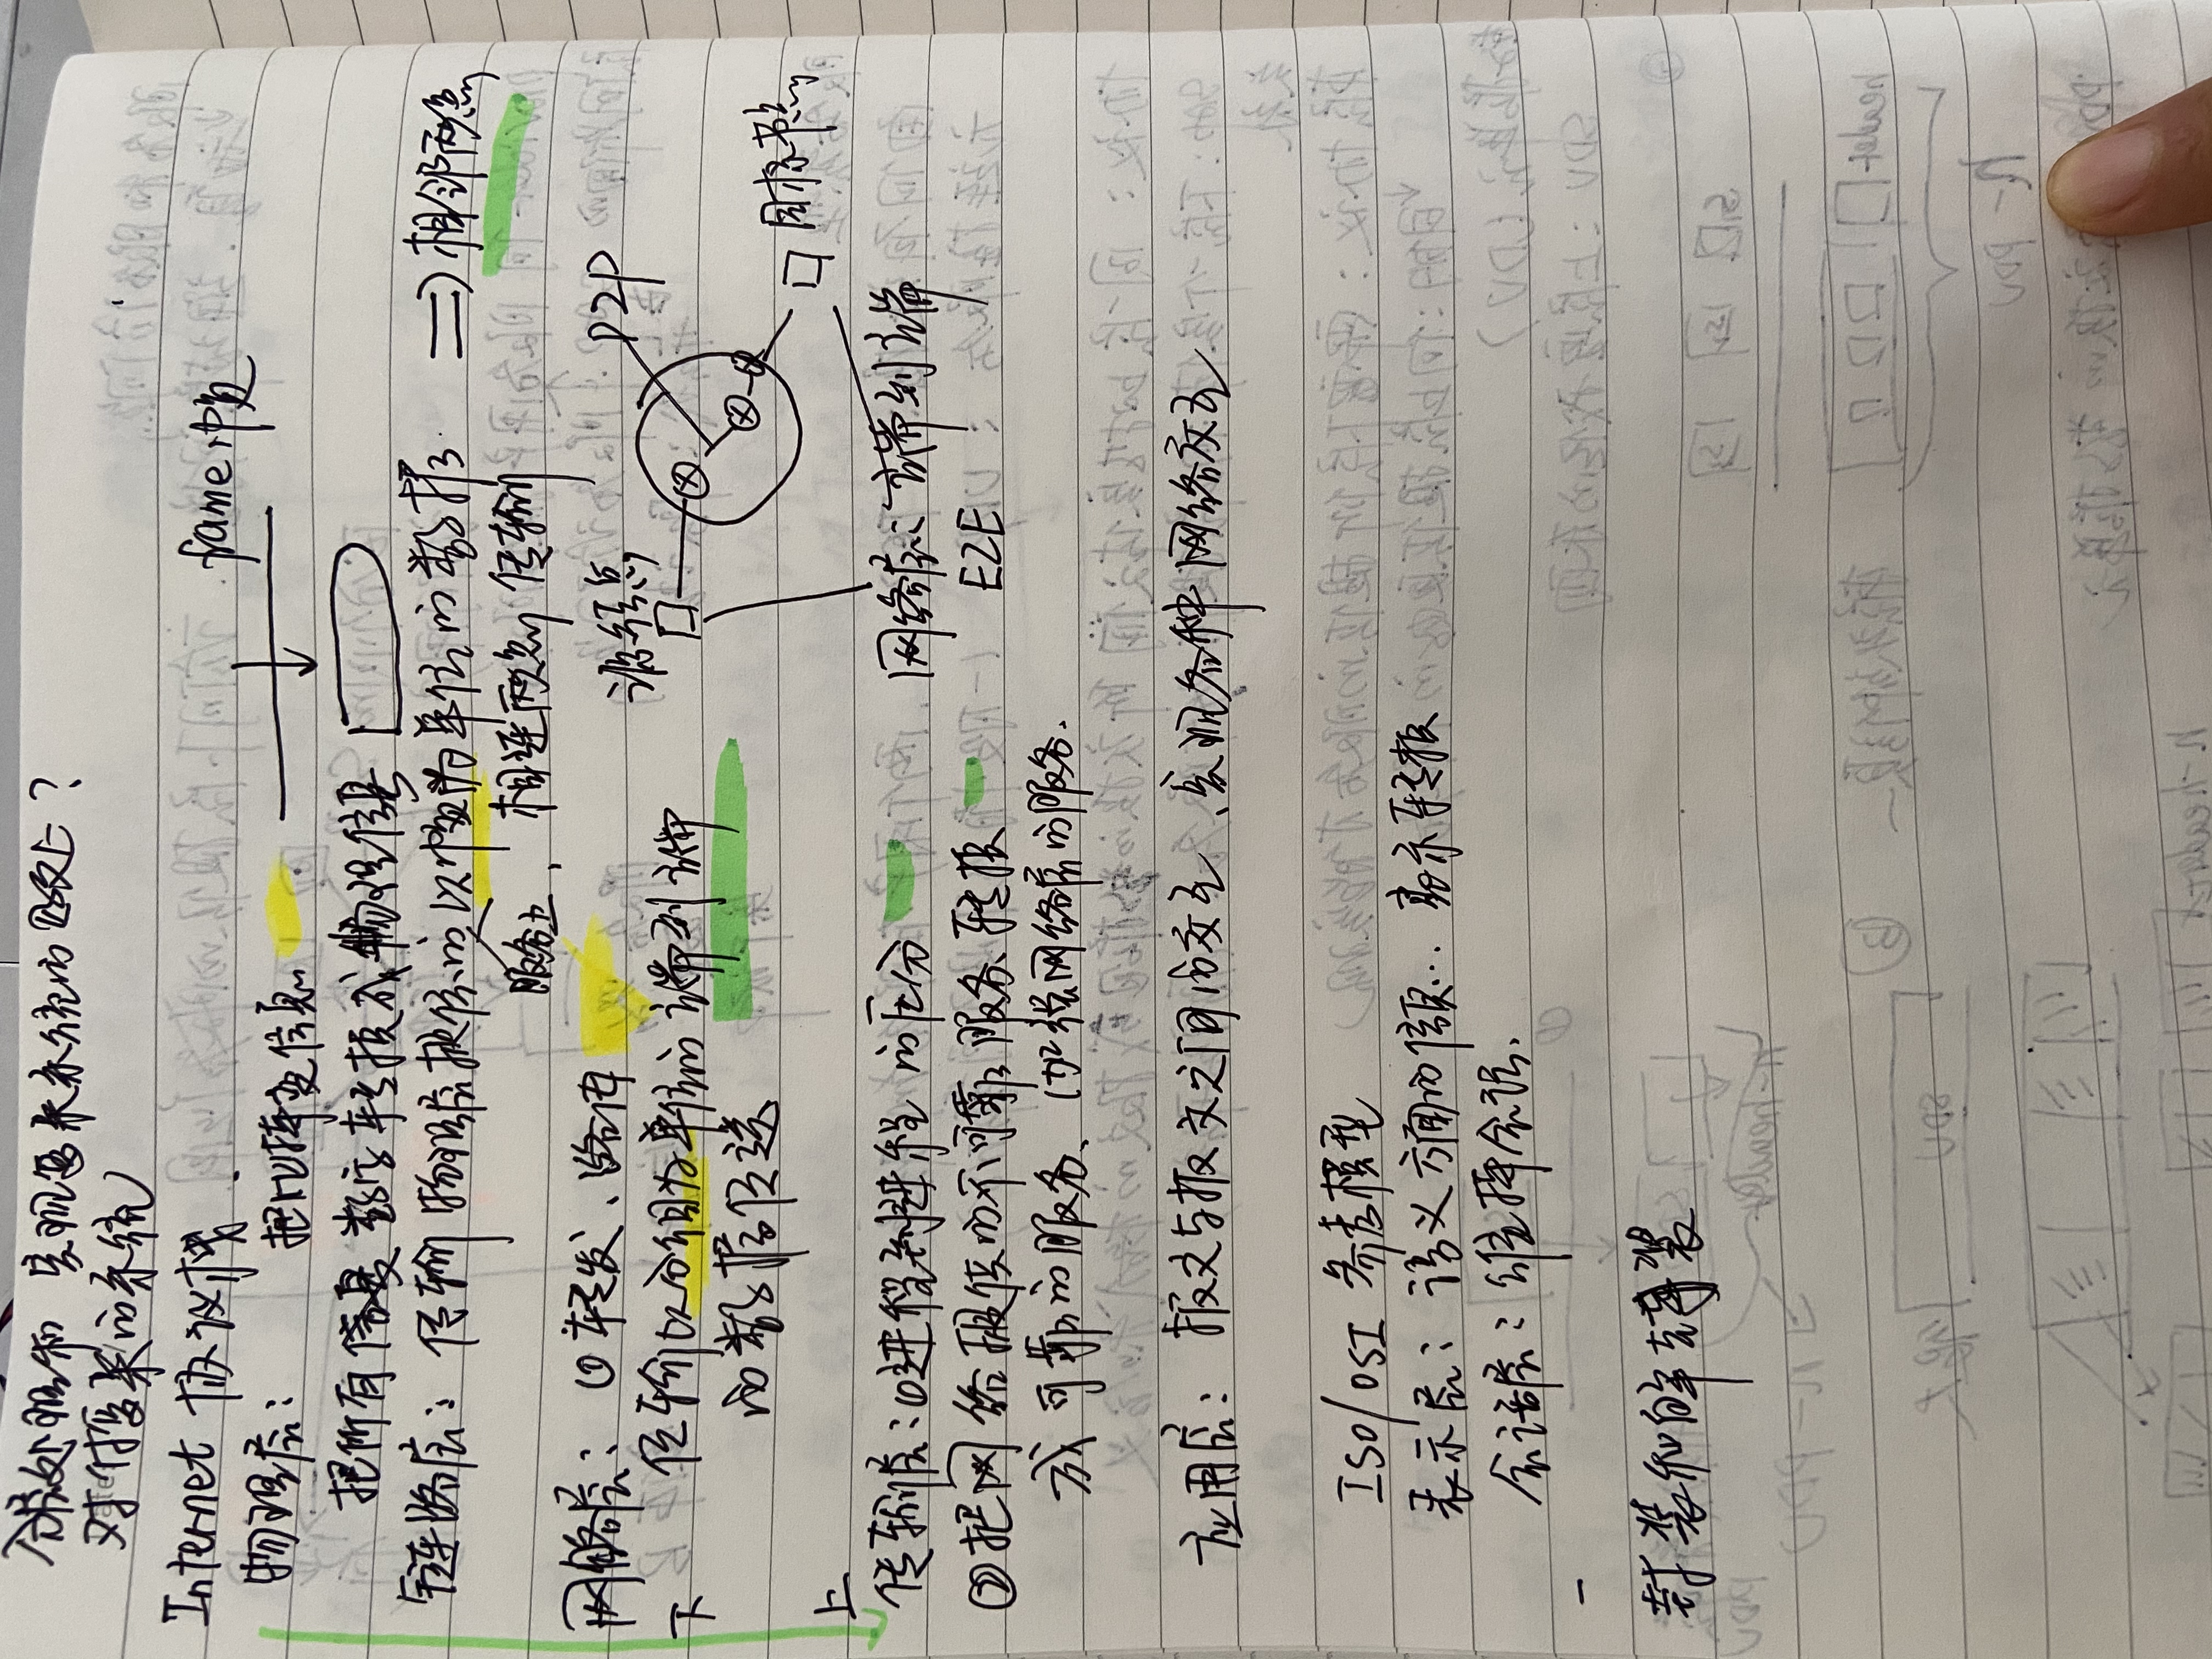 分层处理和实现复杂系统的好处?
对付复杂的系统
Internet 协议栈
frame 帧
物理层: 把比特变信息
把所有信息数字转换成物理信号
链路层: 传输物理层提供的以帧为单位的数据. => 相邻两点
服务上, 相连两点传输
网络层: ① 转发、路由
传输以分组为单位的端到端
的数据传送
下
上
源节点
P2P
目标节点
网络层: 端到端
E2E
传输层: ①进程到进程的区分
②把网络提供的不可靠服务、转换
成可靠的服务、加强网络层的服务.
应用层: 报文与报文之间的交互、实现各种网络交互
ISO/OSI 参考模型
表示层: 语义方面的信息... 表示转换
会话层: 维持会话.
封装和解封装